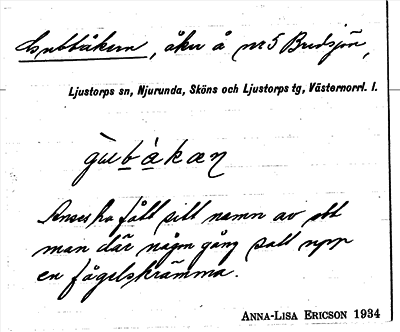 Gubbåkern, åker å nr 5 Bredsjön,
Ljustorps sn, Njurunda, Sköns och Ljustorps tg, Västernorrl. l.
gu̇bà̱kæɳ
Anses ha fått sitt namn av att
man där någon gång satt upp
en fågelskrämma.
ANNA-LISA ERICSON 1934